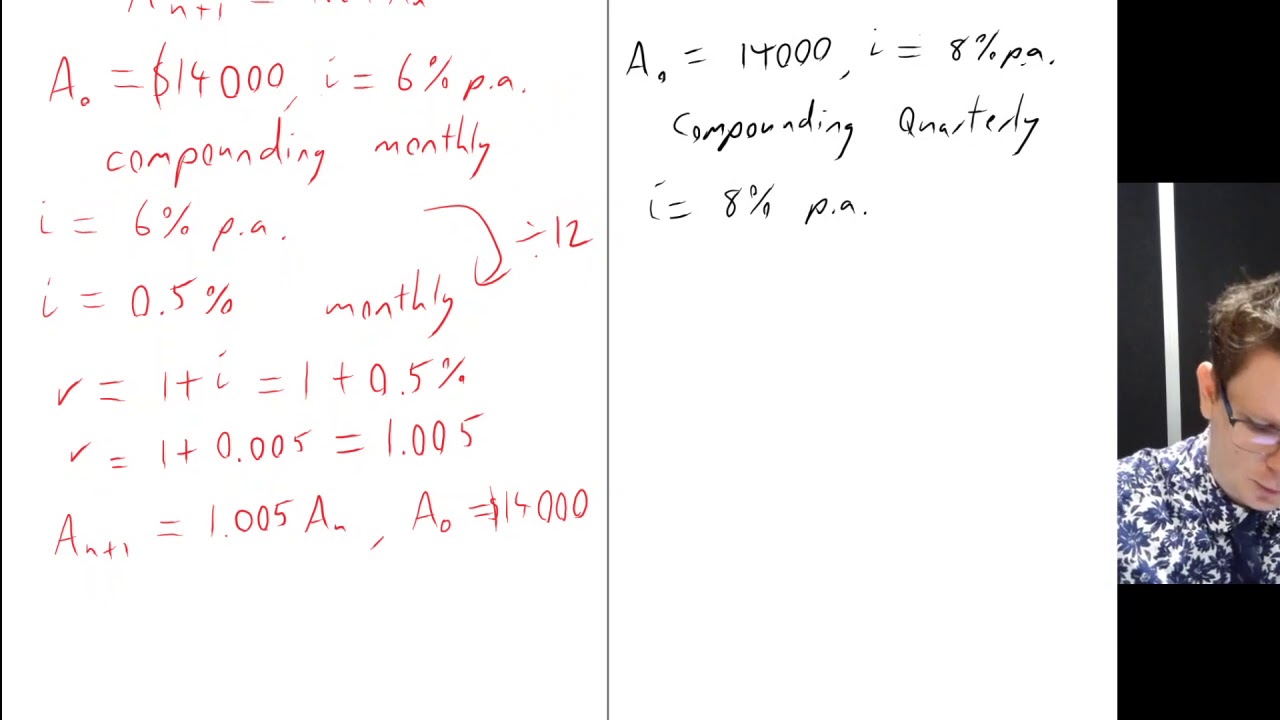 A₀ = $14000, i = 6% p.a.
compounding monthly
i = 6% p.a.
÷12
i = 0.5% monthly
r = 1+i = 1 + 0.5%
r = 1+ 0.005 = 1.005
Aₙ₊₁ = 1.005 Aₙ, A₀ = $14000
A₀ = 14000, i = 8% p.a.
Compounding Quarterly
i = 8% p.a.